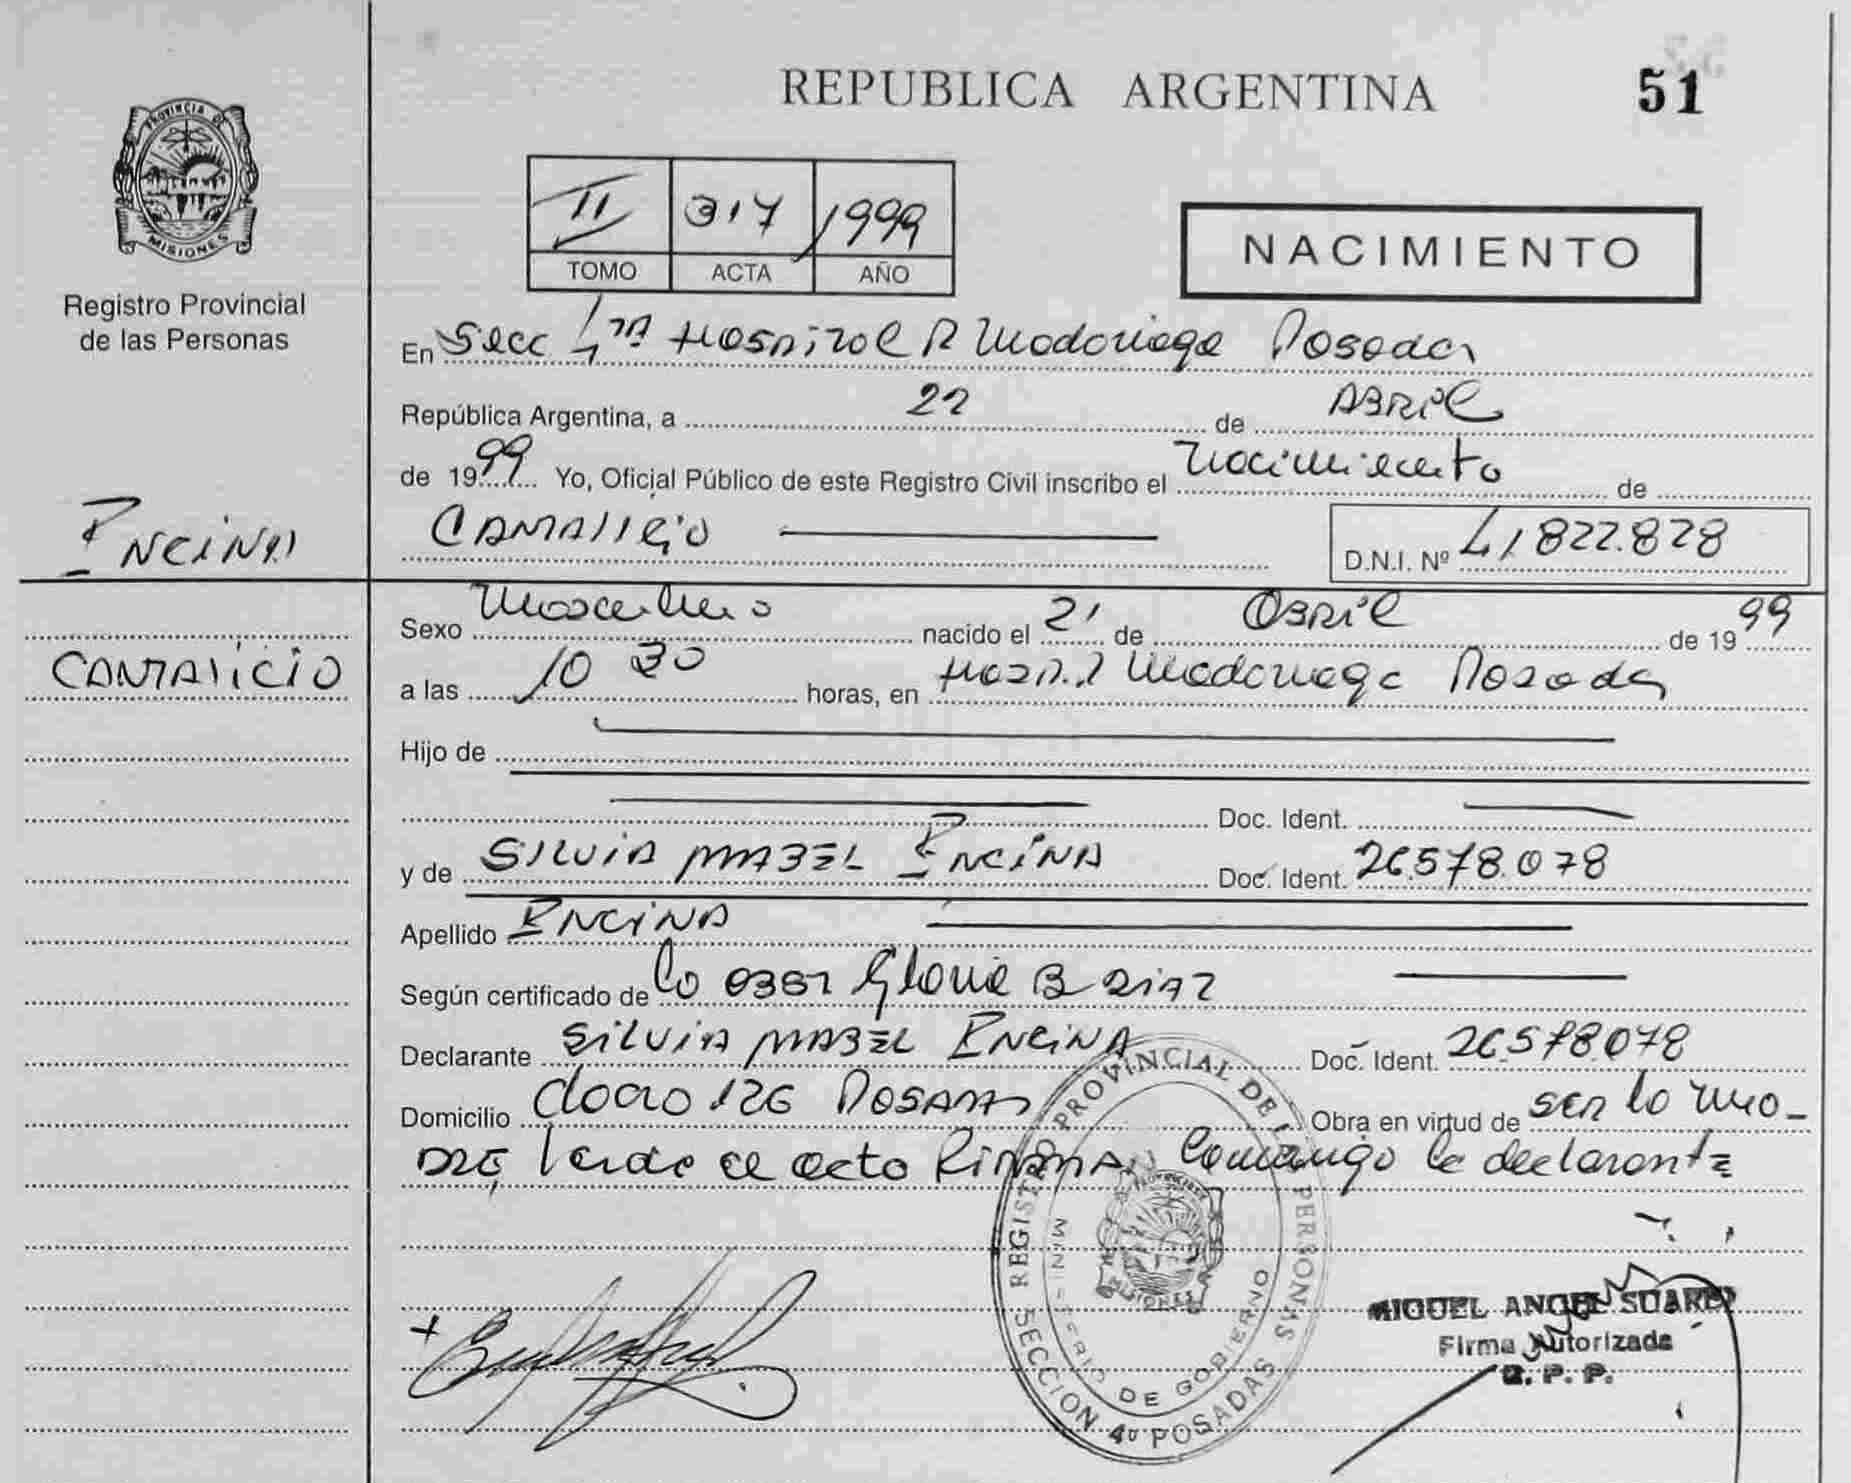 REPUBLICA ARGENTINA
51
PROVINCIA DE
MISIONES
Registro Provincial
de las Personas
II 317 1999
TOMO ACTA AÑO
NACIMIENTO
En Secc 4ta Hospital R Madariaga Posadas
República Argentina, a 22 de ABRIL
de 1999 Yo, Oficial Público de este Registro Civil inscribo el Nacimiento de
ENCINA
CANTALICIO
D.N.I. Nº 41822.828
Sexo Masculino nacido el 21 de ABRIL de 1999
CANTALICIO
a las 10 30 horas, en Hospital Madariaga Posadas
Hijo de
Doc. Ident.
y de SILVIA MABEL ENCINA Doc. Ident. 26578.078
Apellido ENCINA
Según certificado de la OBST Gloria B DIAZ
Declarante SILVIA MABEL ENCINA Doc. Ident. 26578.078
Domicilio 126 POSADAS Obra en virtud de ser la MA-
DRE, Leída el acta FIRMAN Conmigo la declarante
REGISTRO PROVINCIAL DE PERSONAS
MINISTERIO DE GOBIERNO
SECCION 4º POSADAS
MISIONES
MIGUEL ANGEL SUAREZ
Firma Autorizada
R. P. P.